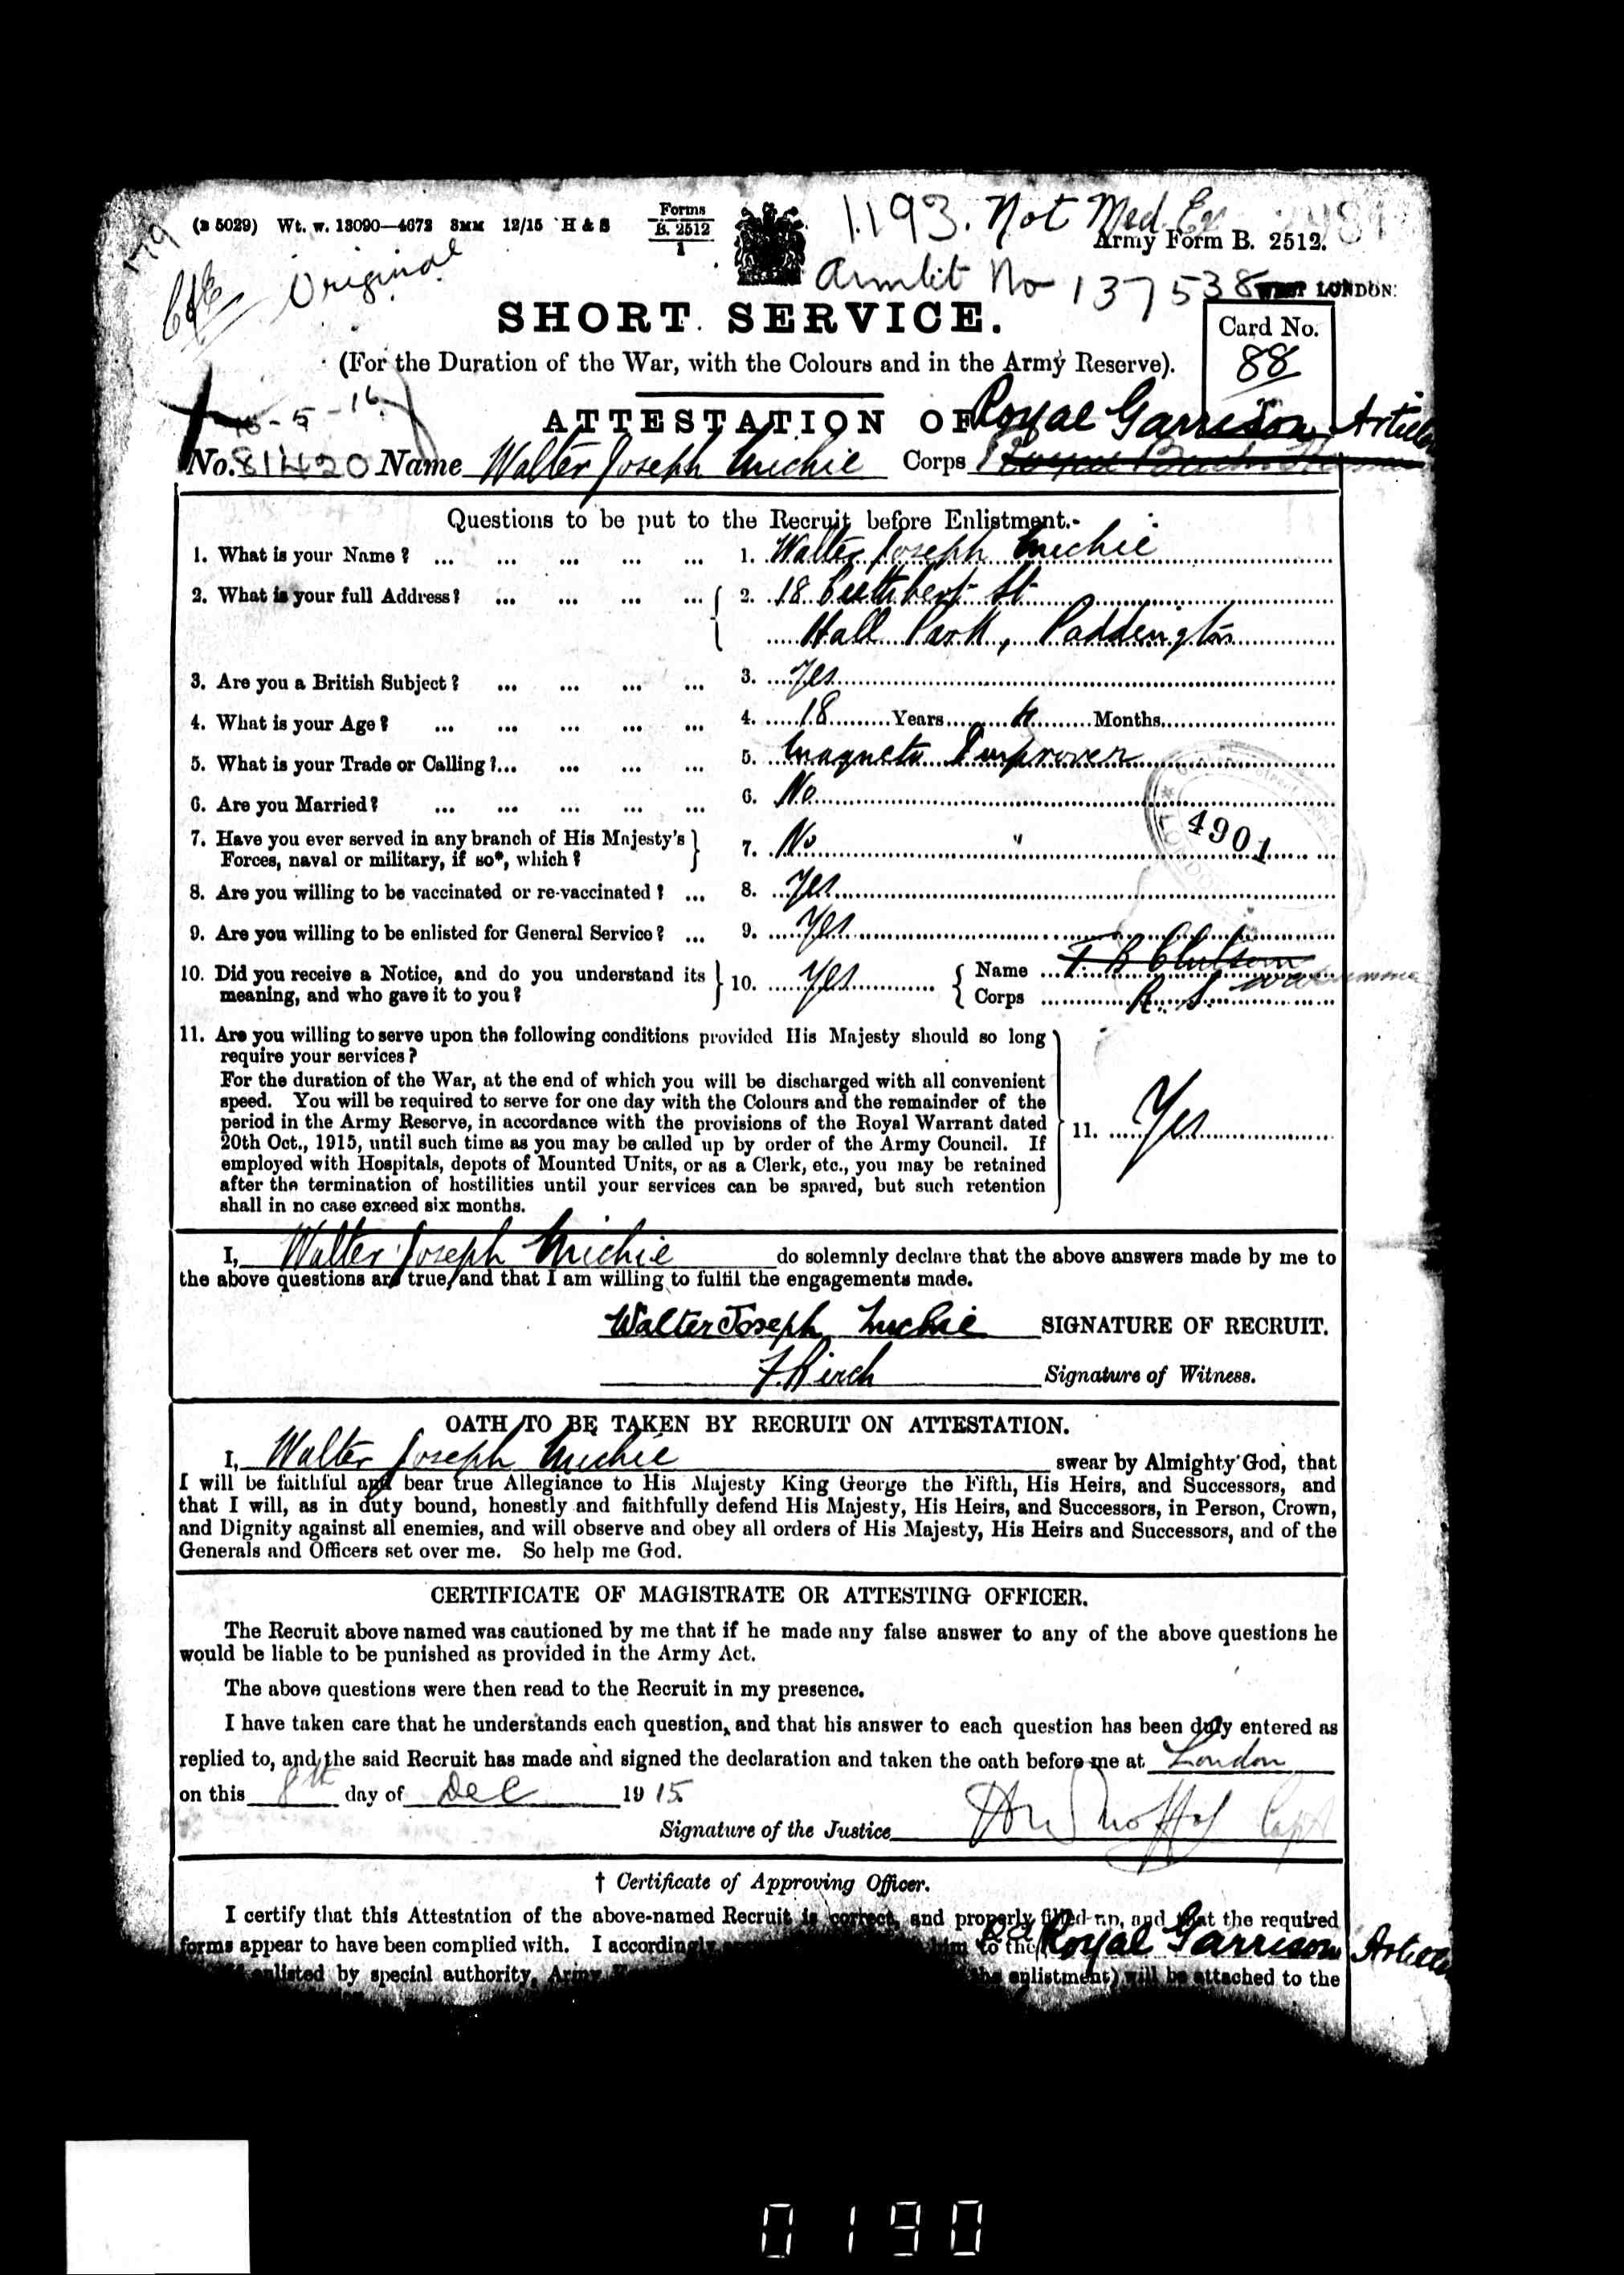 179
(B 5029) Wt. w. 13090—4673 3MM 12/15 H & S Forms B. 2512 1
1193. Not Med Ex
Army Form B. 2512.
Original
Armlet No 137538 WEST LONDON:
SHORT SERVICE.
Card No.
88
(For the Duration of the War, with the Colours and in the Army Reserve).
-5-16
ATTESTATION OF Royal Garrison Artille
No. 81420 Name Walter Joseph Michie Corps Royal
Questions to be put to the Recruit before Enlistment.
1. What is your Name? ... ... ... ... ... 1. Walter Joseph Michie
2. What is your full Address? ... ... ... ... 2. 18 Cuthbert St
Hall Park, Paddington
3. Are you a British Subject? ... ... ... ... 3. Yes
4. What is your Age? ... ... ... ... ... 4. 18 Years Months
5. What is your Trade or Calling?... ... ... ... 5. Magneto Improver
6. Are you Married? ... ... ... ... ... 6. No
7. Have you ever served in any branch of His Majesty's
Forces, naval or military, if so*, which? 7. No "
4901
8. Are you willing to be vaccinated or re-vaccinated? ... 8. Yes
9. Are you willing to be enlisted for General Service? ... 9. Yes
10. Did you receive a Notice, and do you understand its
meaning, and who gave it to you? 10. Yes Name
Corps R. S.
11. Are you willing to serve upon the following conditions provided His Majesty should so long
require your services?
For the duration of the War, at the end of which you will be discharged with all convenient
speed. You will be required to serve for one day with the Colours and the remainder of the
period in the Army Reserve, in accordance with the provisions of the Royal Warrant dated
20th Oct., 1915, until such time as you may be called up by order of the Army Council. If
employed with Hospitals, depots of Mounted Units, or as a Clerk, etc., you may be retained
after the termination of hostilities until your services can be spared, but such retention
shall in no case exceed six months.
11. Yes
I, Walter Joseph Michie do solemnly declare that the above answers made by me to
the above questions are true, and that I am willing to fulfil the engagements made.
Walter Joseph Michie SIGNATURE OF RECRUIT.
F. Birch Signature of Witness.
OATH TO BE TAKEN BY RECRUIT ON ATTESTATION.
I, Walter Joseph Michie swear by Almighty God, that
I will be faithful and bear true Allegiance to His Majesty King George the Fifth, His Heirs, and Successors, and
that I will, as in duty bound, honestly and faithfully defend His Majesty, His Heirs, and Successors, in Person, Crown,
and Dignity against all enemies, and will observe and obey all orders of His Majesty, His Heirs and Successors, and of the
Generals and Officers set over me. So help me God.
CERTIFICATE OF MAGISTRATE OR ATTESTING OFFICER.
The Recruit above named was cautioned by me that if he made any false answer to any of the above questions he
would be liable to be punished as provided in the Army Act.
The above questions were then read to the Recruit in my presence.
I have taken care that he understands each question, and that his answer to each question has been duly entered as
replied to, and the said Recruit has made and signed the declaration and taken the oath before me at London
on this 8th day of Dec 1915
Signature of the Justice Capt
† Certificate of Approving Officer.
I certify that this Attestation of the above-named Recruit is correct, and properly filled up, and that the required
forms appear to have been complied with. I accordingly him to the Royal Garrison Artille
enlisted by special authority, Army enlistment) will be attached to the
0190